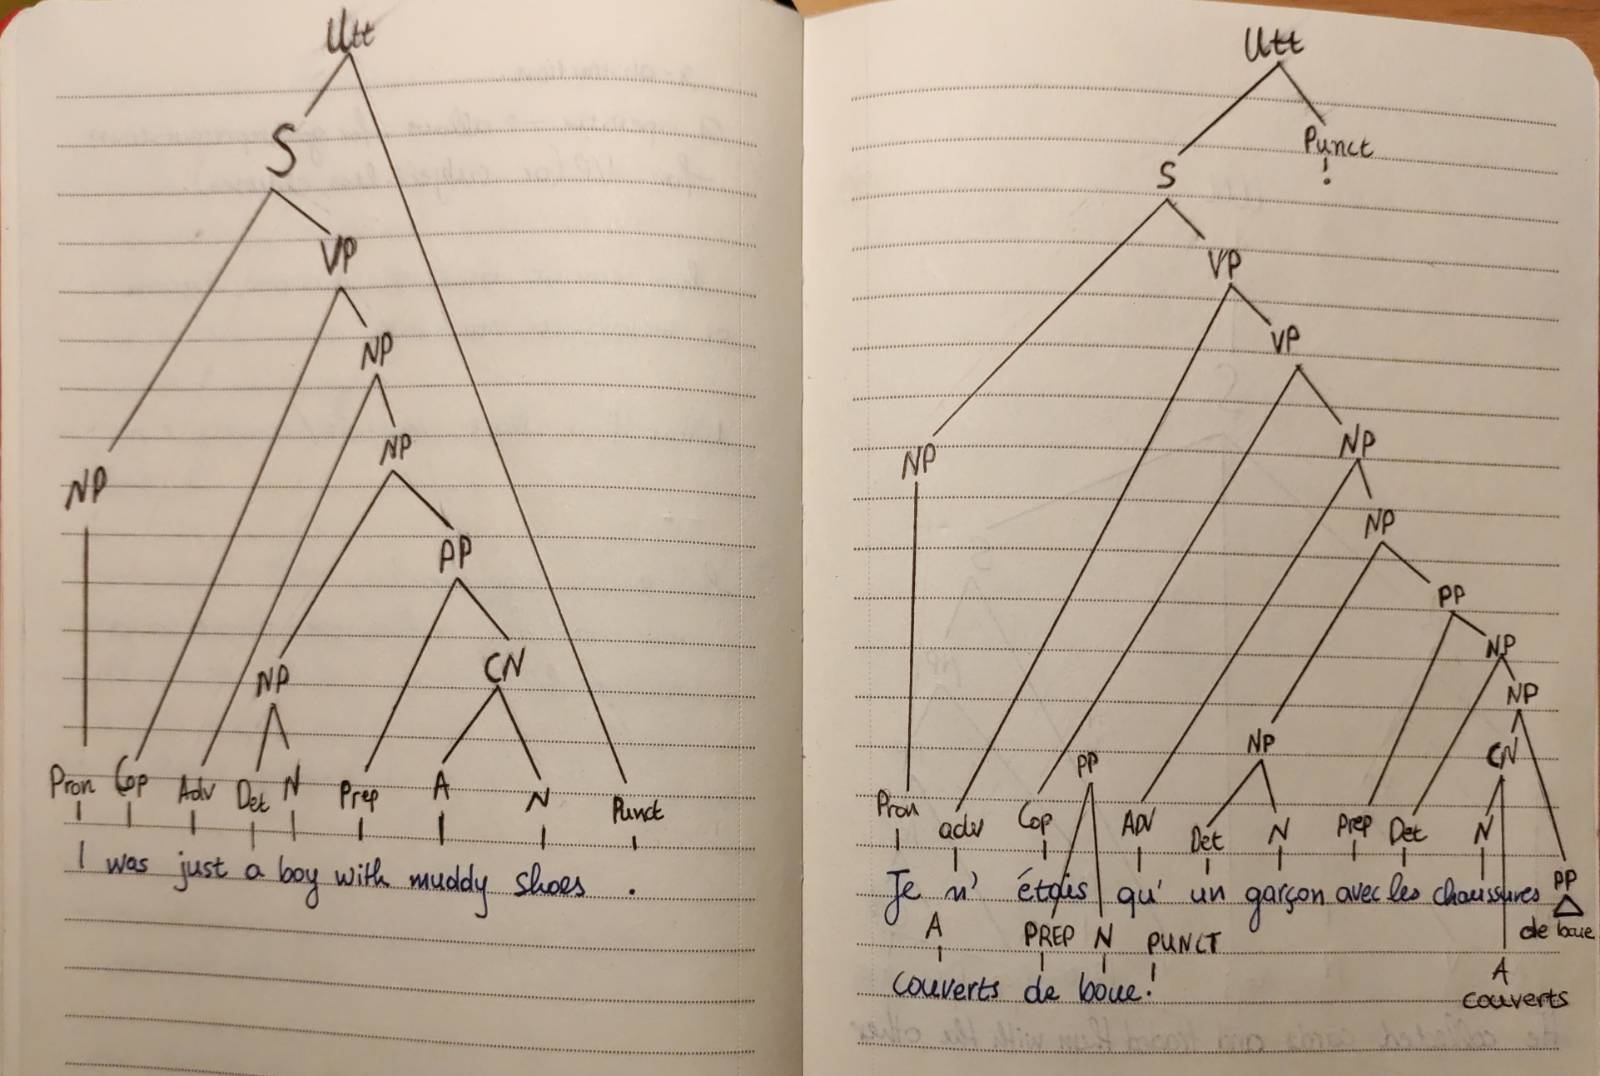 Utt
S
VP
NP
NP
NP
PP
NP
CN
Pron Cop Adv Det N Prep A N Punct
I was just a boy with muddy shoes .
Utt
Punct
!
S
VP
VP
NP
NP
NP
PP
NP
NP
PP NP CN
Pron adv Cop ADV Det N Prep Det N
Je n' étais qu' un garçon avec les chaussures PP
A PREP N PUNCT de boue
couverts de boue! A
couverts